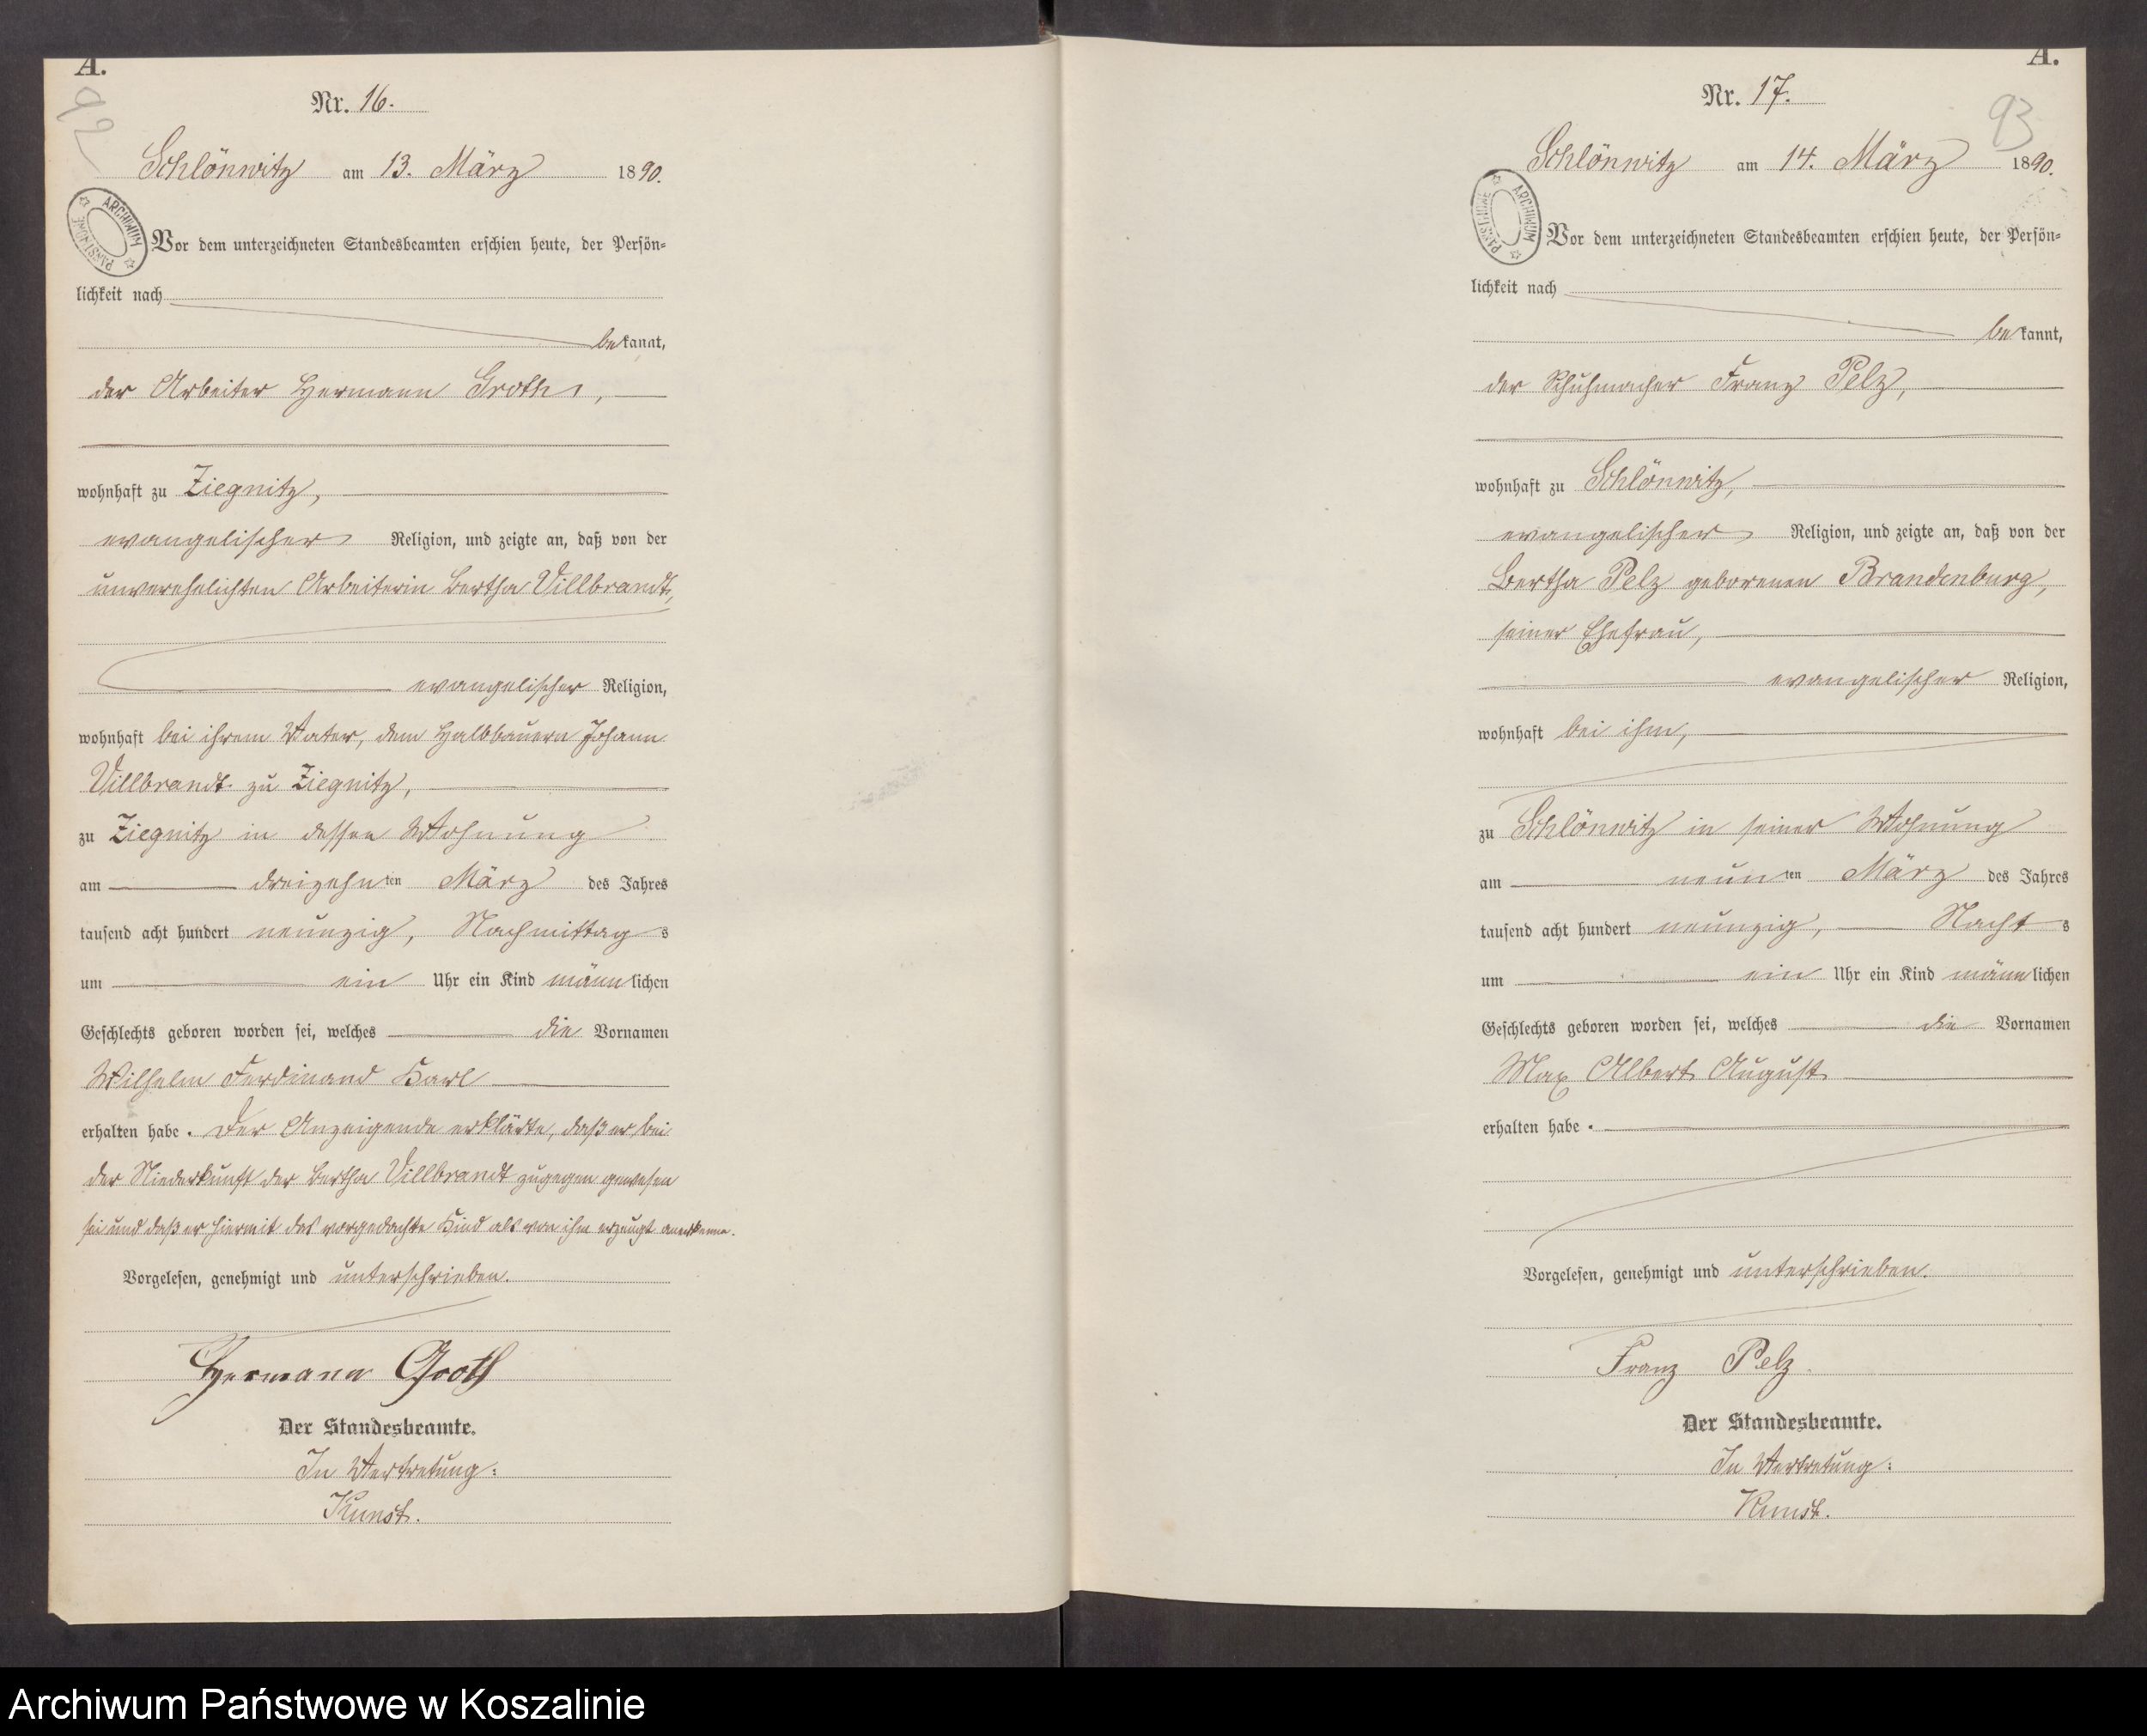 A.
92
Nr. 16.
Schlönwitz am 13. März 1890.
ARCHIWUM PAŃSTWOWE
Vor dem unterzeichneten Standesbeamten erschien heute, der Persön-
lichkeit nach
bekannt,
der Arbeiter Hermann Groth,
wohnhaft zu Ziegnitz,
evangelischer Religion, und zeigte an, daß von der
unverehelichten Arbeiterin Bertha Villbrandt,
evangelischer Religion,
wohnhaft bei ihrem Vater, dem Halbbauern Johann
Villbrandt zu Ziegnitz,
zu Ziegnitz in dessen Wohnung
am dreizehnten März des Jahres
tausend acht hundert neunzig, Nachmittags
um ein Uhr ein Kind männlichen
Geschlechts geboren worden sei, welches die Vornamen
Wilhelm Ferdinand Karl
erhalten habe. Der Anzeigende erklärte, daß er bei
der Niederkunft der Bertha Villbrandt zugegen gewesen
sei und daß er hiermit das vorgedachte Kind als von ihm erzeugt anerkenne.
Vorgelesen, genehmigt und unterschrieben.
Hermann Groth
Der Standesbeamte.
In Vertretung:
Kunst.
A.
93
Nr. 17.
Schlönwitz am 14. März 1890.
ARCHIWUM PAŃSTWOWE
Vor dem unterzeichneten Standesbeamten erschien heute, der Persön-
lichkeit nach
bekannt,
der Schuhmacher Franz Pelz,
wohnhaft zu Schlönwitz,
evangelischer Religion, und zeigte an, daß von der
Bertha Pelz geborenen Brandenburg,
seiner Ehefrau,
evangelischer Religion,
wohnhaft bei ihm,
zu Schlönwitz in seiner Wohnung
am neunten März des Jahres
tausend acht hundert neunzig, Nachts
um ein Uhr ein Kind männlichen
Geschlechts geboren worden sei, welches die Vornamen
Max Albert August
erhalten habe.
Vorgelesen, genehmigt und unterschrieben.
Franz Pelz.
Der Standesbeamte.
In Vertretung:
Kunst.
Archiwum Państwowe w Koszalinie